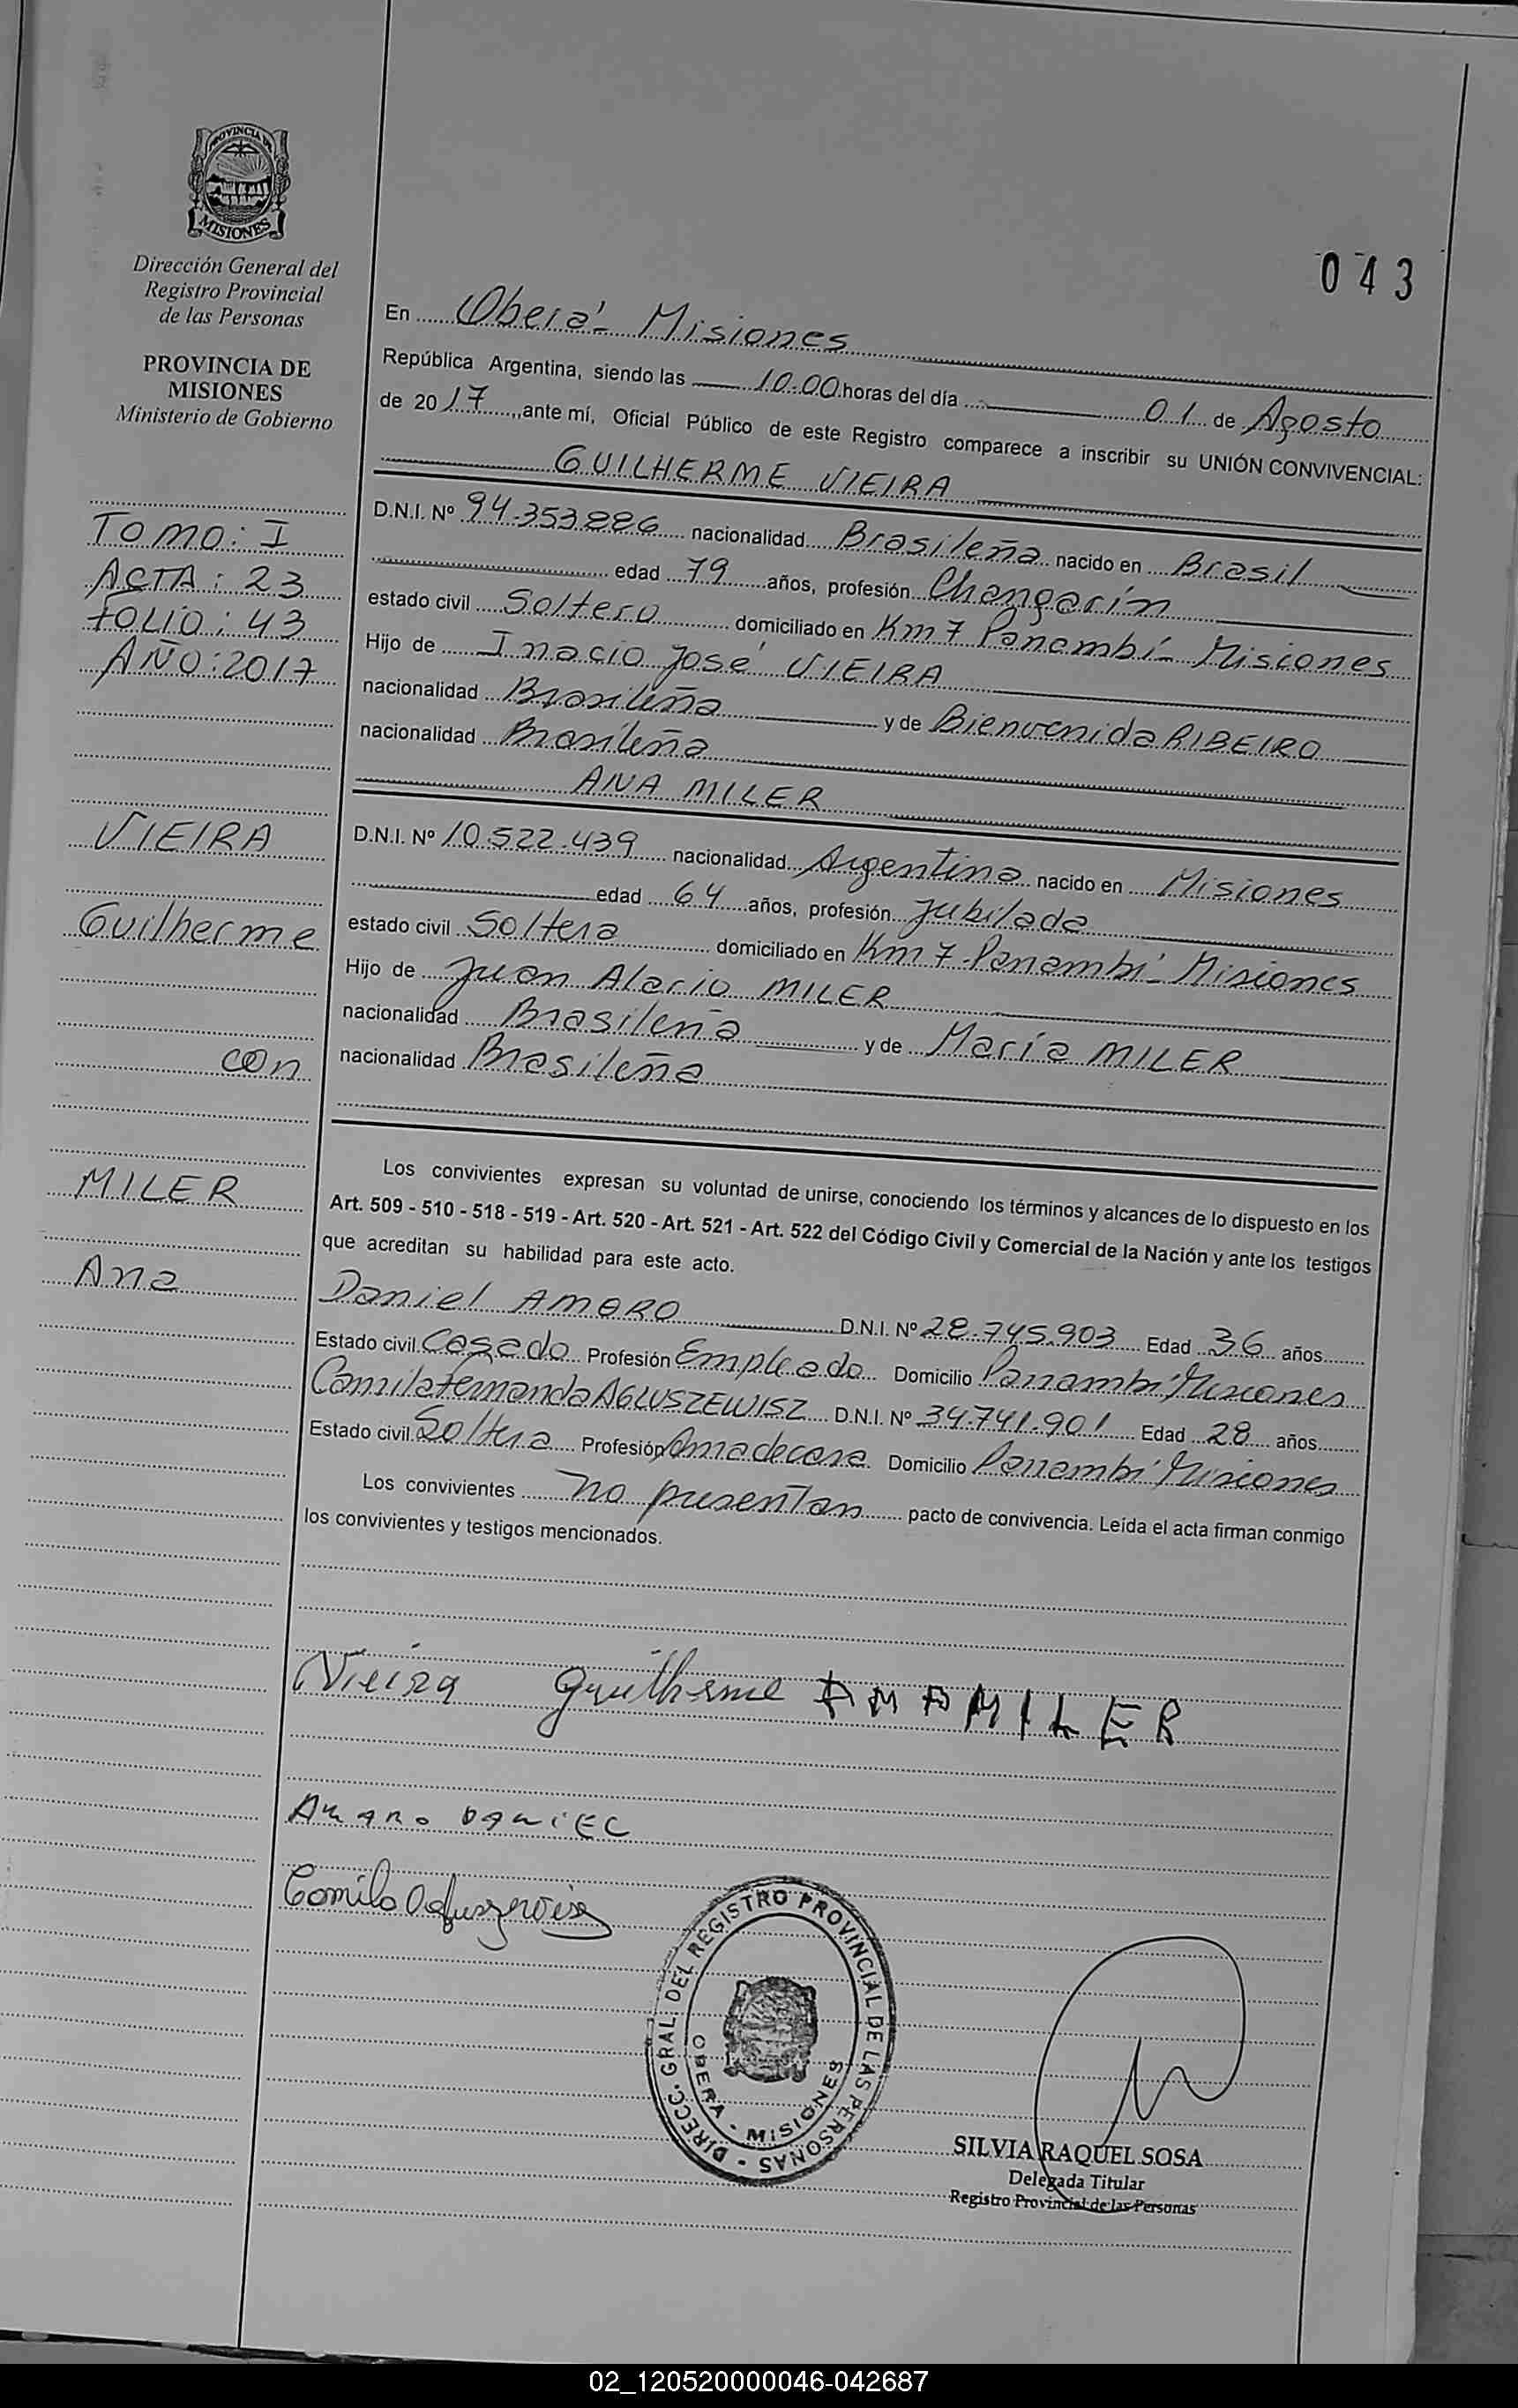 PROVINCIA DE
MISIONES
Dirección General del
Registro Provincial
de las Personas
PROVINCIA DE
MISIONES
Ministerio de Gobierno
TOMO: I
ACTA: 23
FOLIO: 43
AÑO: 2017
VIEIRA
Guilherme
con
MILER
Ana
043
En Oberá - Misiones
República Argentina, siendo las 10.00 horas del día 01 de Agosto
de 2017, ante mí, Oficial Público de este Registro comparece a inscribir su UNIÓN CONVIVENCIAL:
GUILHERME VIEIRA
D.N.I. Nº 94.353.886 nacionalidad Brasileña nacido en Brasil
edad 79 años, profesión Changarín
estado civil Soltero domiciliado en Km 7 Panambí - Misiones
Hijo de Inacio José VIEIRA
nacionalidad Brasileña y de Bienvenida RIBEIRO
nacionalidad Brasileña
ANA MILER
D.N.I. Nº 10.522.439 nacionalidad Argentina nacido en Misiones
edad 64 años, profesión Jubilada
estado civil Soltera domiciliado en Km 7 - Panambí - Misiones
Hijo de Juan Alario MILER
nacionalidad Brasileña y de María MILER
nacionalidad Brasileña
Los convivientes expresan su voluntad de unirse, conociendo los términos y alcances de lo dispuesto en los
Art. 509 - 510 - 518 - 519 - Art. 520 - Art. 521 - Art. 522 del Código Civil y Comercial de la Nación y ante los testigos
que acreditan su habilidad para este acto.
Daniel AMARO D.N.I. Nº 28.745.903 Edad 36 años
Estado civil Casado Profesión Empleado Domicilio Panambí Misiones
Camila Fernanda AGLUSZEWISZ D.N.I. Nº 34.741.901 Edad 28 años
Estado civil Soltera Profesión Ama de casa Domicilio Panambí Misiones
Los convivientes no presentan pacto de convivencia. Leída el acta firman conmigo
los convivientes y testigos mencionados.
Vieira Guilherme ANA MILER
AMARO DANIEL
DIRECC. GRAL. DEL REGISTRO PROVINCIAL DE LAS PERSONAS
OBERA - MISIONES
SILVIA RAQUEL SOSA
Delegada Titular
Registro Provincial de las Personas
02_120520000046-042687